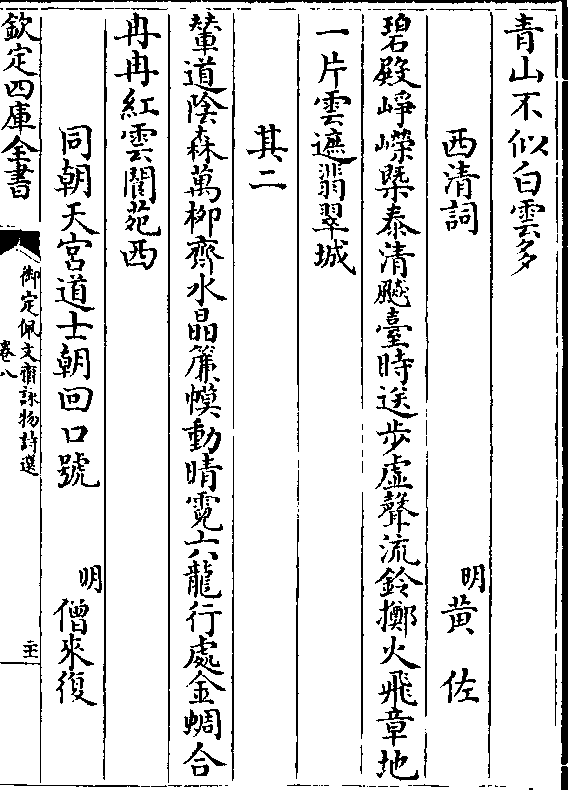 青山不似白雲多
西清詞
明黄佐
碧殿崢嶸槩泰清飈臺時送步虚聲流鈴擲火飛章地
一片雲遮翡翠城
其二
輦道陰森萬栁齊水晶簾幙動晴霓六龍行處金蜩合
冉冉紅雲閬苑西
同朝天宫道士朝回口號
明僧來復
欽定四庫全書
御定佩文齋詠物詩選
卷八